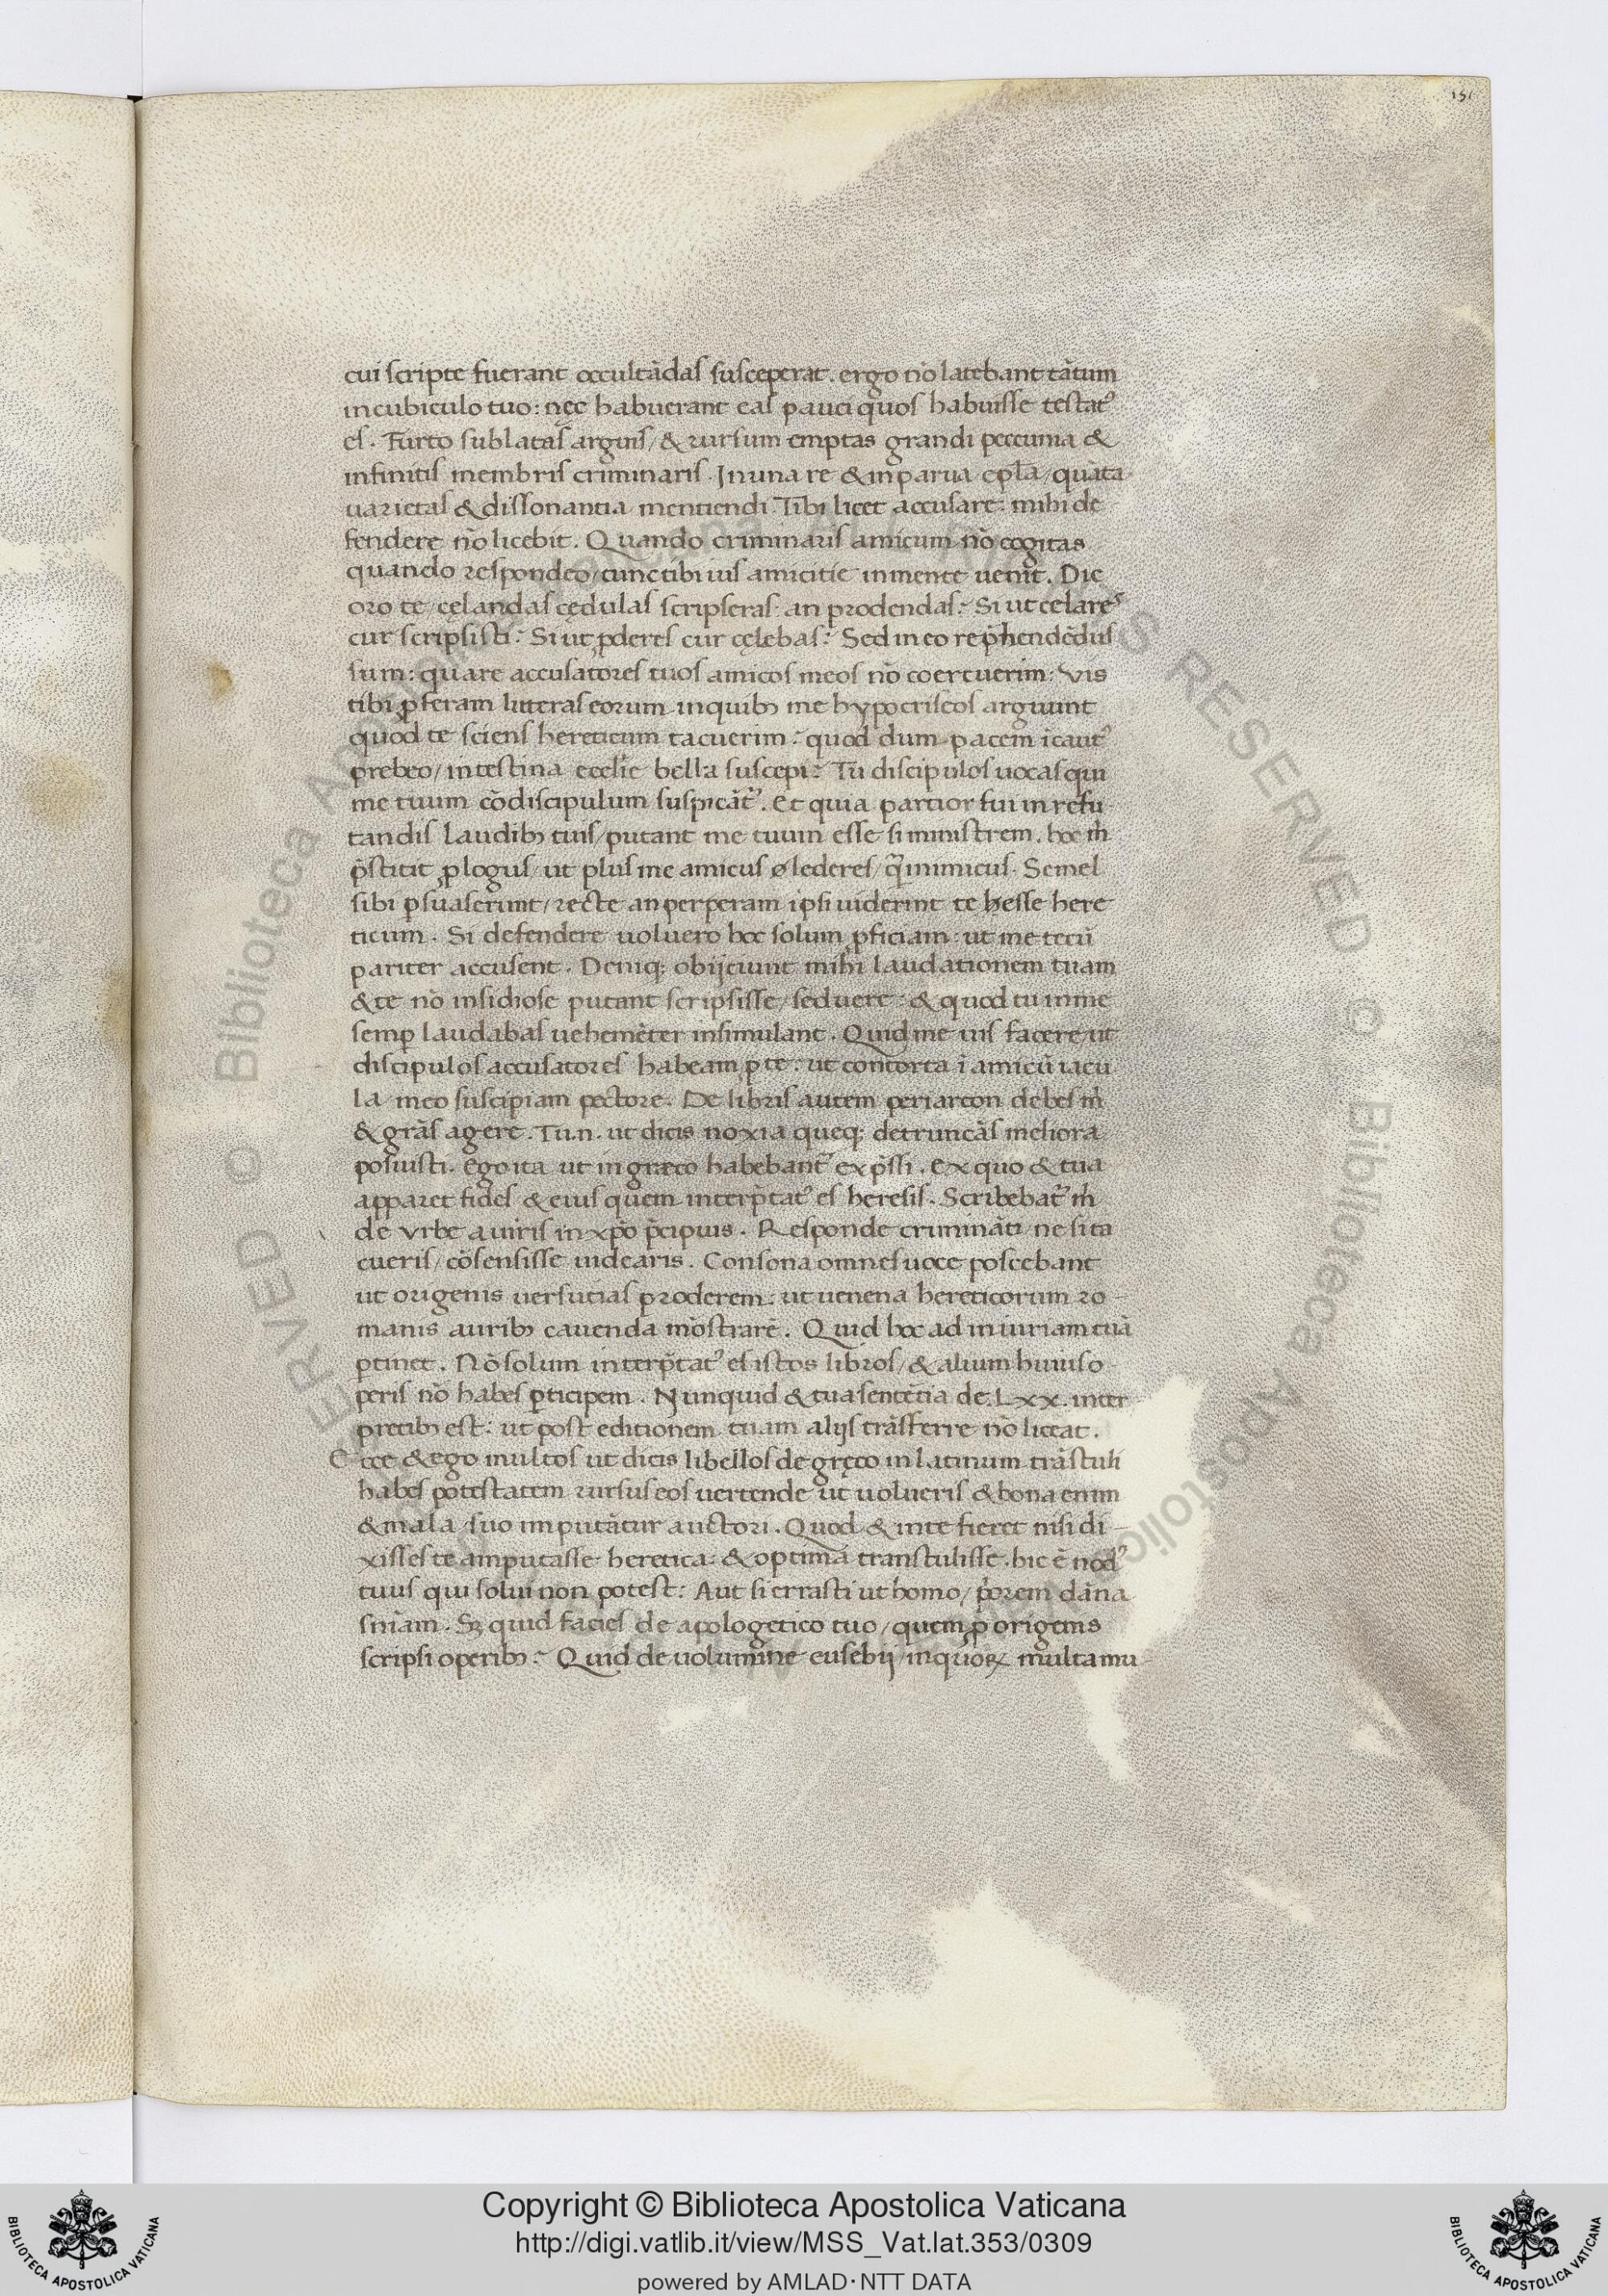 151
cui scripte fuerant occultādas susceperat. ergo nō latebant tātum
in cubiculo tuo: nęc habuerant eas pauci quos habuisse testatᷣ
es. Furto sublatas arguis / & rursum emptas grandi peccunia &
infinitis membris criminaris. In una re & in parua epl̄a / quāta
uarietas & dissonantia mentiendi. Tibi licet accusare: mihi de
fendere nō licebit. Quando criminaris amicum nō cogitas
quando respondeo / tunc tibi ius amicitie in mente uenit. Dic
oro te / cęlandas cędulas scripseras. an prodendas? Si ut celares
cur scripsisti? Si ut ꝓderes cur cęlebas? Sed in eo rep̄hendēdus
sum: quare accusatores tuos amicos meos nō coercuerim: Vis
tibi ꝓferam litteras eorum in quibꝫ me hypocriseos arguunt
quod te sciens hereticum tacuerim? quod dum pacem īcautᷣ
prebeo / intestina ecclie bella suscepi? Tu discipulos uocas qui
me tuum cōdiscipulum suspicātᷣ. Et quia partior fui in refu
tandis laudibꝫ tuis / putant me tuum esse siministrem. hoc m̄
p̄stitit ꝓlogus / ut plus me amicus ø lederes / q̄ inimicus. Semel
sibi ꝑsuaserunt / recte an perperam ipsi uiderint te hesse here
ticum. Si defendere uoluero hoc solum ꝓficiam: ut me tecū
pariter accusent. Deniqꝫ obijciunt mihi laudationem tuam
& te nō insidiose putant scripsisse / sed uere: & quod tu in me
semꝑ laudabas uehemēter insimulant. Quid me uis facere / ut
discipulos accusatores habeam ꝑ te: ut contorta ī amicū iacu
la meo suscipiam pectore. De libris autem periarcon debes m̄
& grās agere. Tu.n. ut dicis noxia queqꝫ detruncās meliora
posuisti. Ego ita ut in gręco habebantᷣ exp̄ssi. Ex quo & tua
apparet fides & eius quem interp̄tatᷣ es heresis. Scribebatᷣ m̄
de Vrbe a uiris in xp̄o p̄cipuis. Responde crimināti / ne si ta
cueris / cōsensisse uidearis. Consona omnes uoce poscebant
ut origenis uersutias proderem: ut uenena hereticorum ro-
manis auribꝫ cauenda mōstrarē. Quid hoc ad iniuriam tuā
ꝑtinet. Nō solum interp̄tatᷣ es istos libros / & alium huius o
peris nō habes ꝑticipem. Nunquid & tua sentētia de .LXX. inter
pretibꝫ est: ut post editionem tuam alijs trāsferre nō liceat.
Ecce & ego multos ut dicis libellos de gręco in latinum trāstuli
habes potestatem rursus eos uertende ut uolueris & bona enim
& mala / suo imputātur auctori. Quod & in te fieret nisi di-
xisses te amputasse heretica: & optima transtulisse. hic ē nodᷣ
tuus qui solui non potest: Aut si errasti ut homo / p̄orem dāna
sn̄iam. Sꝫ quid facies de apologetico tuo / quem ꝓ origenis
scripsi operibꝫ? Quid de uolumine eusebij / in quoꝝ multa mu-
Copyright © Biblioteca Apostolica Vaticana
http://digi.vatlib.it/view/MSS_Vat.lat.353/0309
powered by AMLAD·NTT DATA
BIBLIOTECA APOSTOLICA VATICANA
BIBLIOTECA APOSTOLICA VATICANA